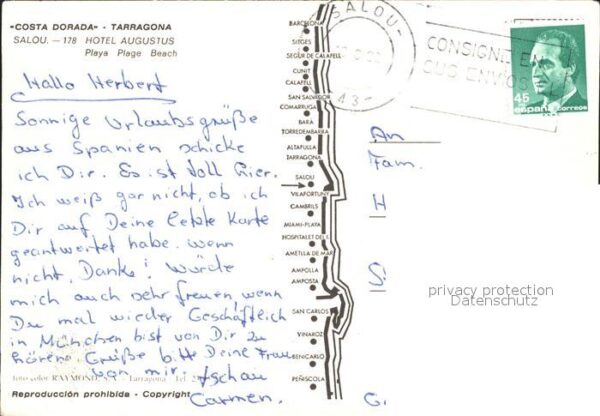 «COSTA DORADA» - TARRAGONA
SALOU. - 178 HOTEL AUGUSTUS
Playa Plage Beach
Hallo Herbert
Sonnige Urlaubsgrüße
aus Spanien schicke
ich Dir. Es ist toll hier.
Ich weiß gar nicht, ob ich
Dir auf Deine letzte Karte
geantwortet habe. Wenn
nicht, Danke! Würde
mich auch sehr freuen, wenn
Du mal wieder Geschäftlich
in München bist von Dir zu
hören. Grüße bitte Deine Frau
von mir. Tschau
Carmen.
foto color RAYMOND, S. A. - Tarragona - Tel.
Reproducción prohibida - Copyright
BARCELONA
SITGES
SEGUR DE CALAFELL
CUNIT
CALAFELL
SAN SALVADOR
COMARRUGA
BARA
TORREDEMBARRA
ALTAFULLA
TARRAGONA
SALOU
VILAFORTUNY
CAMBRILS
MIAMI-PLAYA
HOSPITALET DEL I.
AMETLLA DE MAR
AMPOLLA
AMPOSTA
SAN CARLOS
VINAROZ
BENICARLO
PEÑISCOLA
SALOU
CONSIGNE EN
SUS ENVIOS
45
españa correos
An
Fam.
H
S
G.
privacy protection
Datenschutz